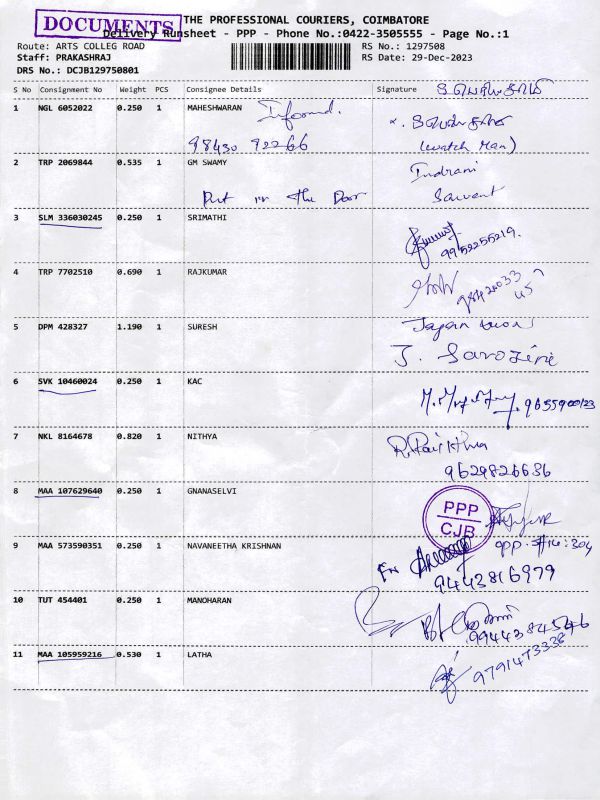 DOCUMENTS
THE PROFESSIONAL COURIERS, COIMBATORE
Delivery Runsheet - PPP - Phone No.:0422-3505555 - Page No.:1
Route: ARTS COLLEG ROAD
RS No.: 1297508
Staff: PRAKASHRAJ
RS Date: 29-Dec-2023
DRS No.: DCJB129750801
S No Consignment No Weight PCS Consignee Details Signature
1 NGL 6052022 0.250 1 MAHESHWARAN Informed.
98430 92266
(watch Man)
2 TRP 2069844 0.535 1 GM SWAMY Indrani
Put in the Door
3 SLM 336030245 0.250 1 SRIMATHI
9952255219.
4 TRP 7702510 0.690 1 RAJKUMAR
5 DPM 428327 1.190 1 SURESH
J.
6 SVK 10460024 0.250 1 KAC
7 NKL 8164678 0.820 1 NITHYA
9629826636
8 MAA 107629640 0.250 1 GNANASELVI
PPP
CJB
9 MAA 573590351 0.250 1 NAVANEETHA KRISHNAN
9443816979
10 TUT 454401 0.250 1 MANOHARAN
9944384546
11 MAA 105959216 0.530 1 LATHA
9791473338